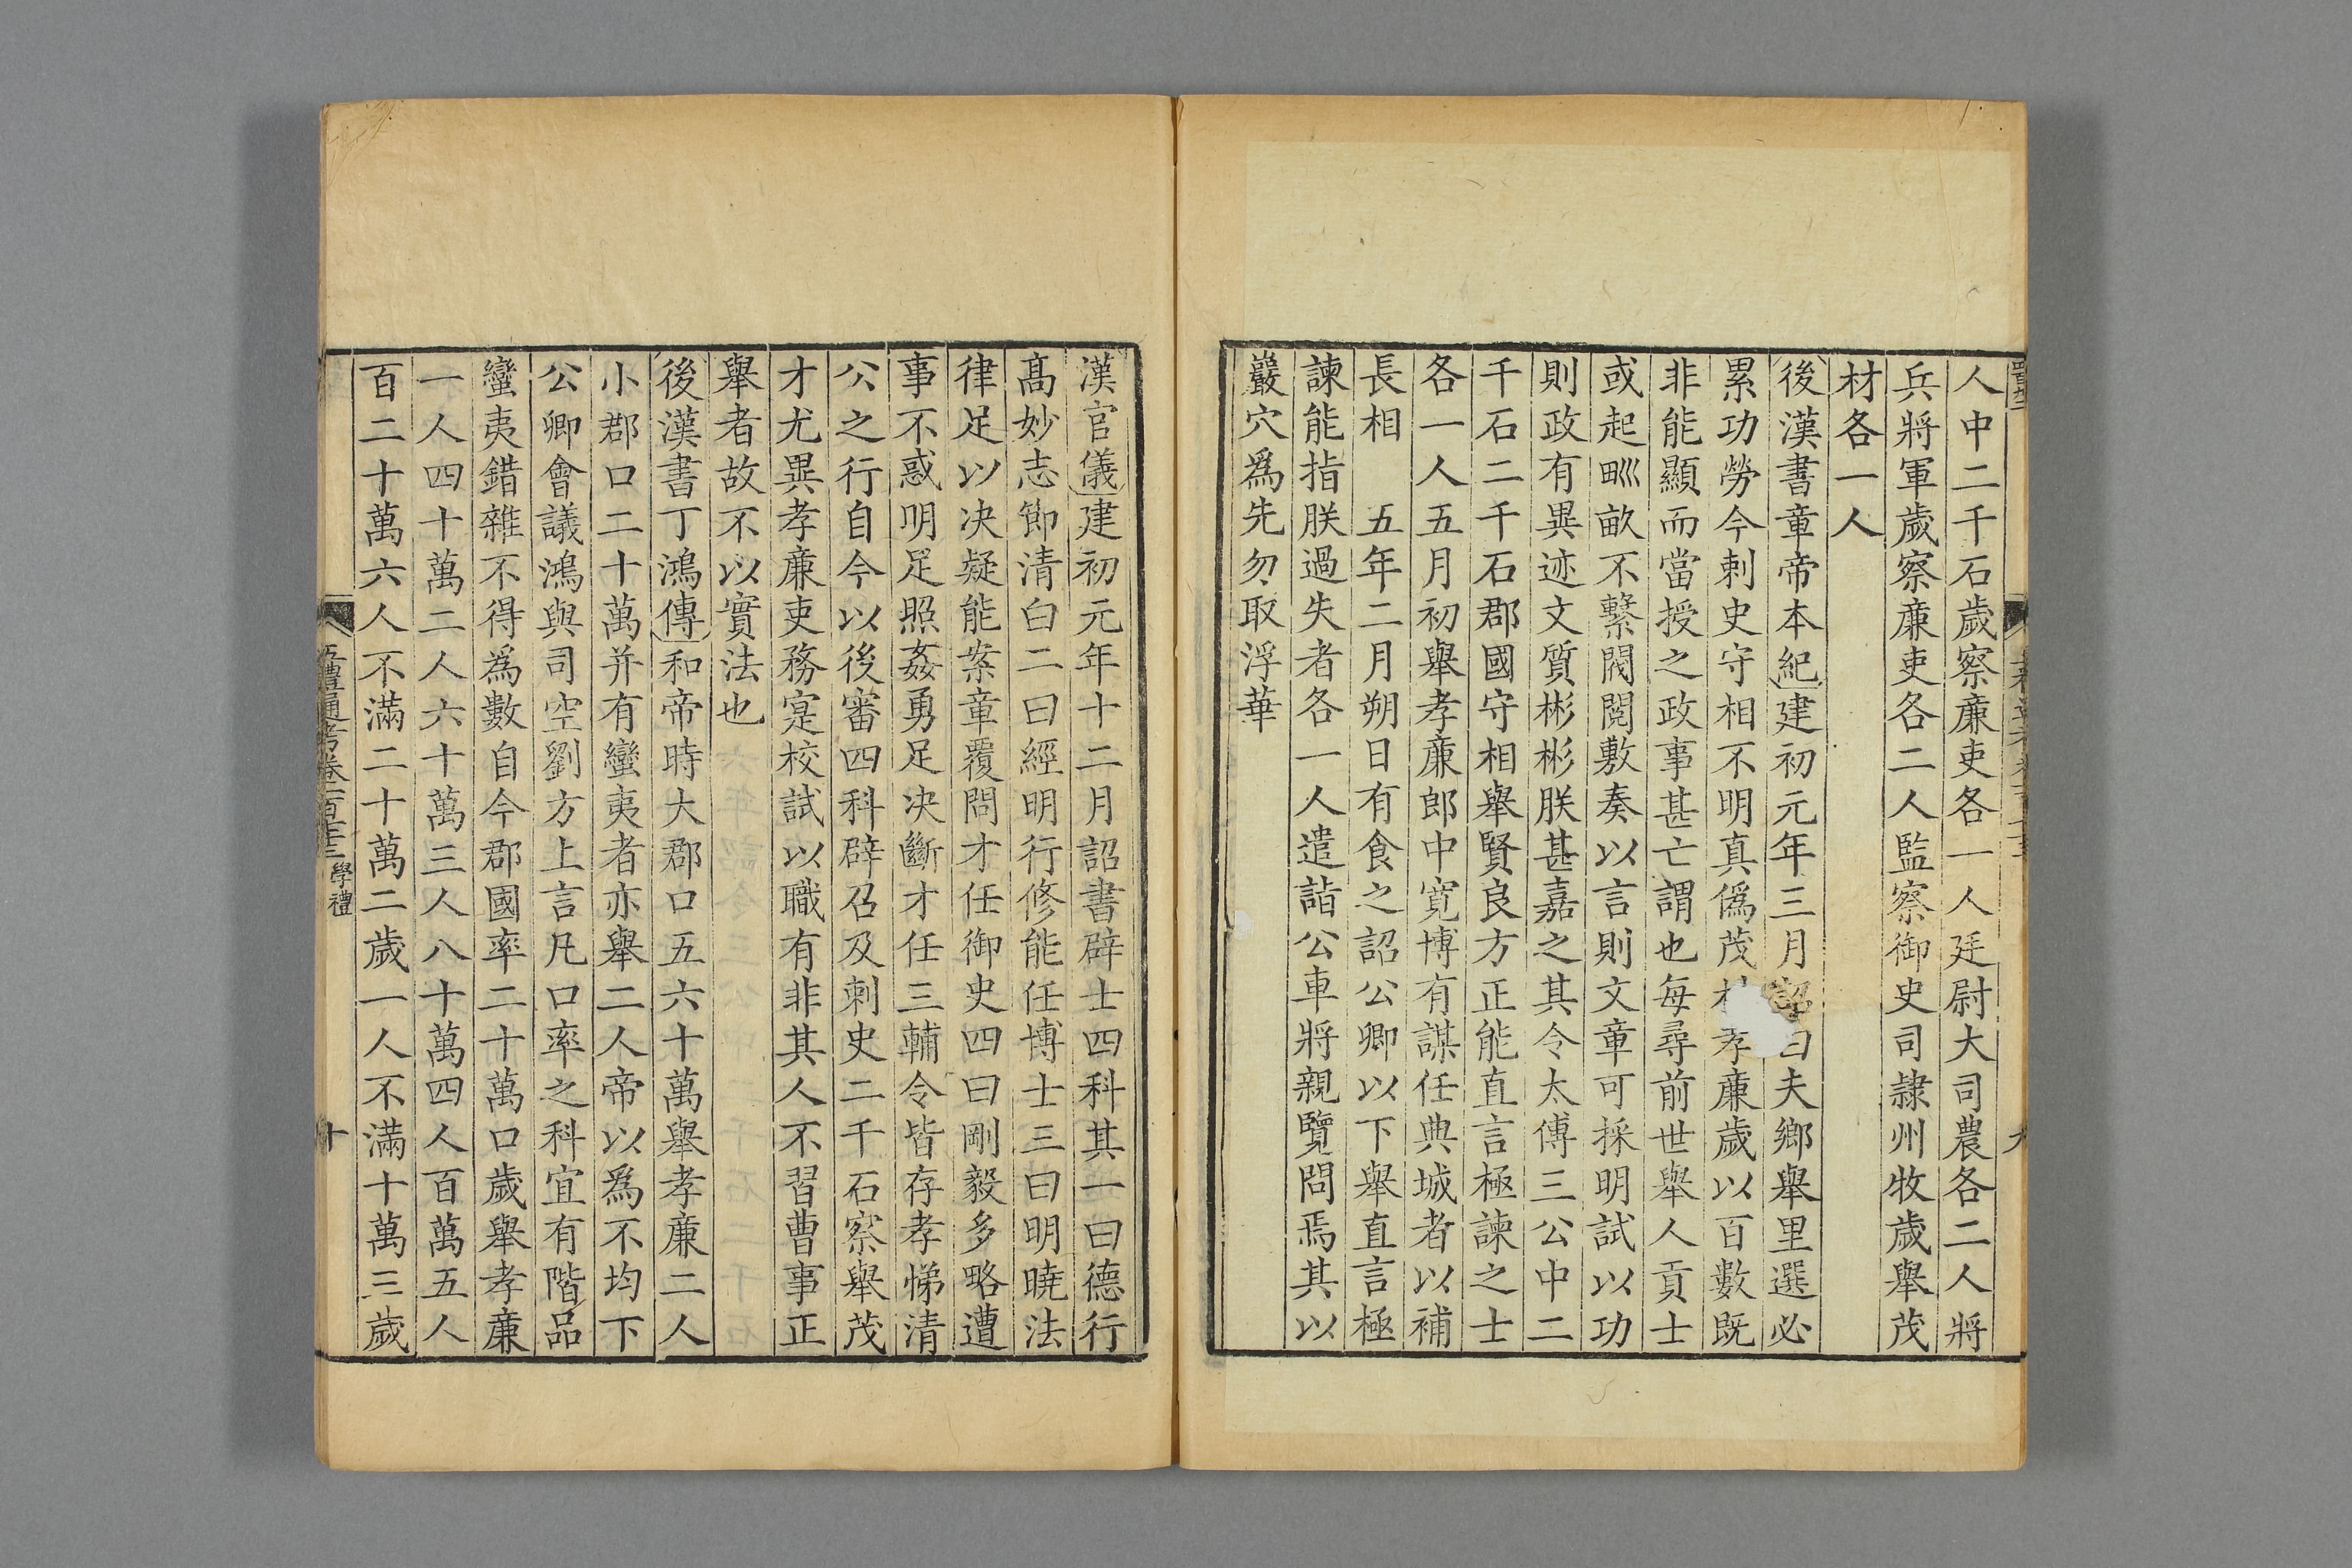 人中二千石歲察廉吏各一人廷尉大司農各二人將
兵將軍歲察廉吏各二人監察御史司隷州牧歲舉茂
材各一人
後漢書章帝本紀建初元年三月詔曰夫鄉舉里選必
累功勞今刺史守相不明真僞茂孝廉歲以百數既
非能顯而當授之政事甚亡謂也每尋前世舉人貢士
或起甽畝不繫閥閱敷奏以言則文章可採明試以功
則政有異迹文質彬彬朕甚嘉之其令太傅三公中二
千石二千石郡國守相舉賢良方正能直言極諫之士
各一人五月初舉孝廉郎中寛博有謀任典城者以補
長相　五年二月朔日有食之詔公卿以下舉直言極
諫能指朕過失者各一人遣詣公車將親覽問焉其以
巖穴爲先勿取浮華
九
漢官儀建初元年十二月詔書辟士四科其一曰德行
髙妙志節清白二曰經明行修能任博士三曰明曉法
律足以决疑能案章覆問才任御史四曰剛毅多略遭
事不惑明足照姦勇足决斷才任三輔令皆存孝悌清
公之行自今以後審四科辟召及刺史二千石察舉茂
才尤異孝廉吏務寔校試以職有非其人不習曹事正
舉者故不以實法也
後漢書丁鴻傳和帝時大郡口五六十萬舉孝廉二人
小郡口二十萬并有蠻夷者亦舉二人帝以爲不均下
公卿會議鴻與司空劉方上言凡口率之科宜有階品
蠻夷錯雜不得爲數自今郡國率二十萬口歲舉孝廉
一人四十萬二人六十萬三人八十萬四人百萬五人
百二十萬六人不滿二十萬二歲一人不滿十萬三歲
五禮通考卷一百七十三 學禮 十